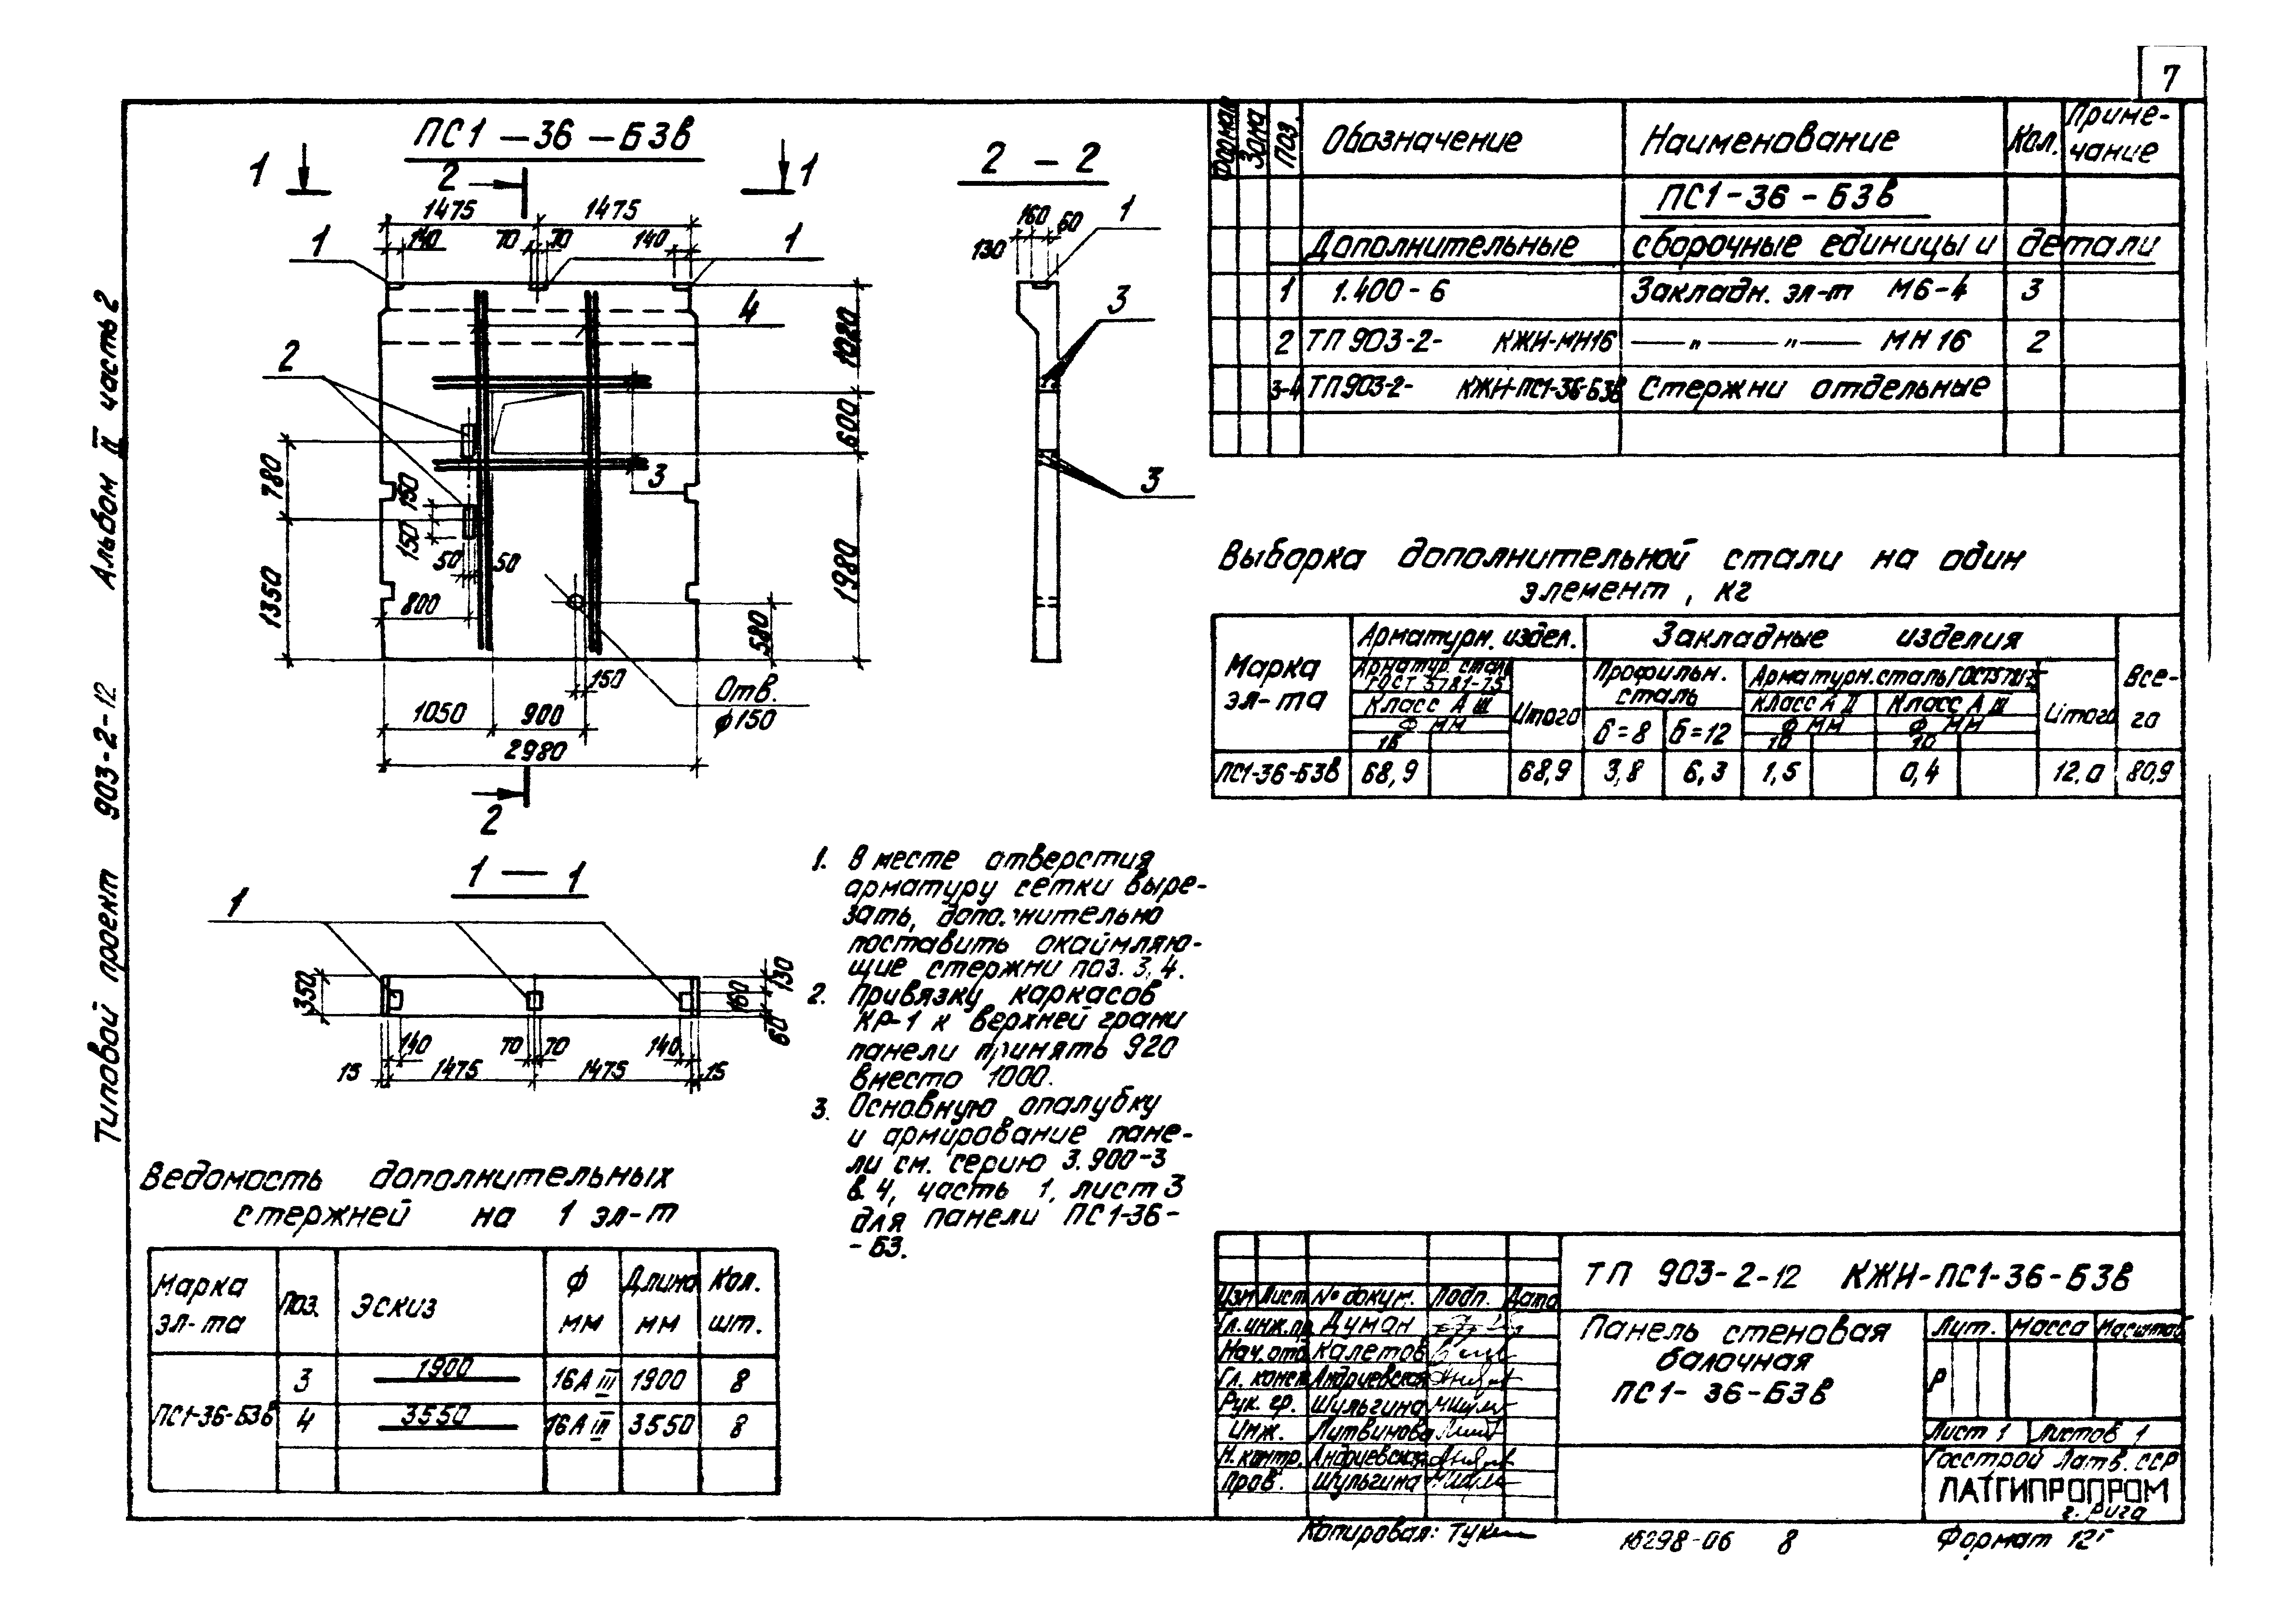 7
Типовой проект 903-2-12 Альбом IV часть 2
ПС1-36-Б3в
1 1
2
1475 1475
140 70 70 140
1 1
4
2
3
1020
600
1980
780
1350
150
150
50 50
800
580
150
Отв.
ф150
1050 900
2980
2
2 - 2
160 60
130
1
3
3
1 - 1
1
350
130
160
60
140 70 70 140
15 1475 1475 15
1. В месте отверстия
арматуру сетки выре-
зать, дополнительно
поставить окаймляю-
щие стержни поз. 3, 4.
2. Привязку каркасов
КР-1 к верхней грани
панели принять 920
вместо 1000.
3. Основную опалубку
и армирование пане-
ли см. серию 3.900-3
в.4, часть 1, лист 3
для панели ПС1-36-
-Б3.
Ведомость дополнительных
стержней на 1 эл-т
Марка эл-та Поз. Эскиз ф мм Длина мм Кол. шт.
ПС1-36-Б3в
3 1900 16АIII 1900 8
4 3550 16АIII 3550 8
Формат Зона Поз. Обозначение Наименование Кол. Приме-
чание
ПС1-36-Б3в
Дополнительные сборочные единицы и детали
1 1.400-6 Закладн. эл-т М6-4 3
2 ТП 903-2- КЖИ-МН16 —"—"— МН 16 2
3-4 ТП903-2- КЖИ-ПС1-36-Б3в Стержни отдельные
Выборка дополнительной стали на один
элемент, кг
Марка эл-та
Арматурн. издел. Закладные изделия Все-
го
Арматур. сталь
ГОСТ 5781-75
Профильн.
сталь
Арматурн.сталь ГОСТ5781-75
Класс А III Итого Класс А II Класс А III Итого
Ф мм б=8 б=12 Ф мм Ф мм
16 10 10
ПС1-36-Б3в 68,9 68,9 3,8 6,3 1,5 0,4 12,0 80,9
ТП 903-2-12 КЖИ-ПС1-36-Б3в
Изм Лист № докум. Подп. Дата
Гл.инж.пр. Думан
Нач.отд Калетов
Гл. конст Андриевская
Рук. гр. Шульгина
Инж. Литвинова
Н.контр. Андриевская
Пров. Шульгина
Панель стеновая
балочная
ПС1-36-Б3в
Лит. Масса Масштаб
Р
Лист 1 Листов 1
Госстрой Латв.ССР
ЛАТГИПРОПРОМ
г. Рига
Копировал: 16298-06 8 Формат 12г